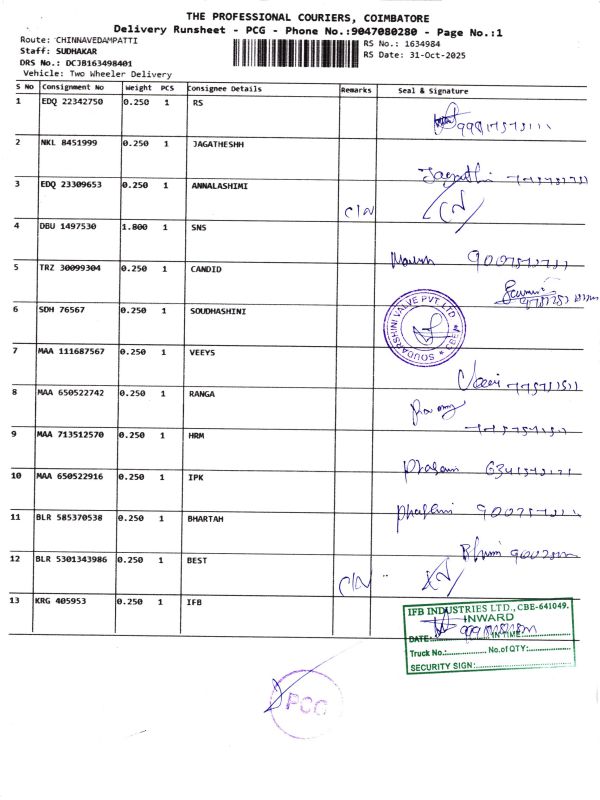 THE PROFESSIONAL COURIERS, COIMBATORE
Delivery Runsheet - PCG - Phone No.:9047080280 - Page No.:1
Route: CHINNAVEDAMPATTI
RS No.: 1634984
Staff: SUDHAKAR
RS Date: 31-Oct-2025
DRS No.: DCJB163498401
Vehicle: Two Wheeler Delivery
S No Consignment No Weight PCS Consignee Details Remarks Seal & Signature
1 EDQ 22342750 0.250 1 RS
2 NKL 8451999 0.250 1 JAGATHESHH
3 EDQ 23309653 0.250 1 ANNALASHIMI
C/N
4 DBU 1497530 1.800 1 SNS
5 TRZ 30099304 0.250 1 CANDID
6 SDH 76567 0.250 1 SOUDHASHINI
SOUDARSHINI VALVE PVT LTD CBE
7 MAA 111687567 0.250 1 VEEYS
8 MAA 650522742 0.250 1 RANGA
9 MAA 713512570 0.250 1 HRM
10 MAA 650522916 0.250 1 IPK
11 BLR 585370538 0.250 1 BHARTAH
12 BLR 5301343986 0.250 1 BEST
C/N
13 KRG 405953 0.250 1 IFB
IFB INDUSTRIES LTD., CBE-641049.
INWARD
DATE: IN TIME
Truck No.: No.of QTY:
SECURITY SIGN:
PCG